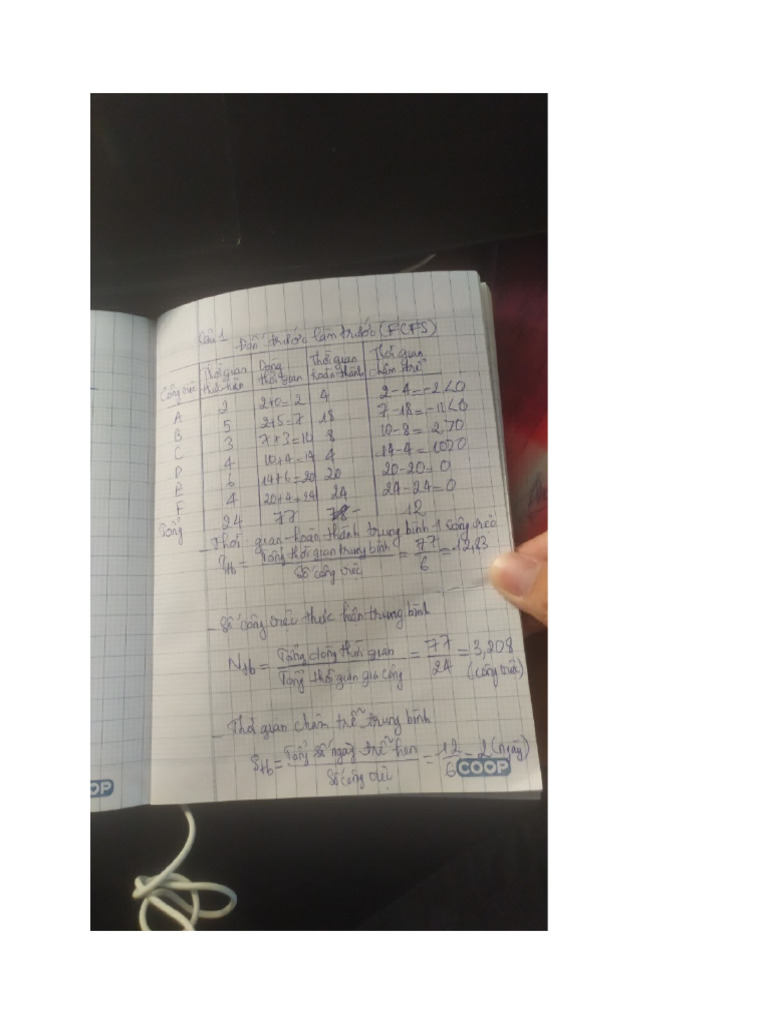 Câu 1 Đến trước làm trước (FCFS)
Công việc Thời gian thực hiện Dòng thời gian Thời gian hoàn thành Thời gian chậm trễ
A 2 2+0=2 4 2-4=-2<0
B 5 2+5=7 18 7-18=-11<0
C 3 7+3=10 8 10-8=2>0
D 4 10+4=14 4 14-4=10>0
E 6 14+6=20 20 20-20=0
F 4 20+4=24 24 24-24=0
Tổng 24 77 78- 12
- Thời gian hoàn thành trung bình 1 công việc
Ttb = Tổng thời gian trung bình / Số công việc = 77/6 = 12,83
- Số công việc thực hiện trung bình
Ntb = Tổng dòng thời gian / Tổng thời gian gia công = 77/24 = 3,208
(công việc)
- Thời gian chậm trễ trung bình
Stb = Tổng số ngày trễ hẹn / Số công việc = 12/6 = 2 (ngày)
COOP
OP